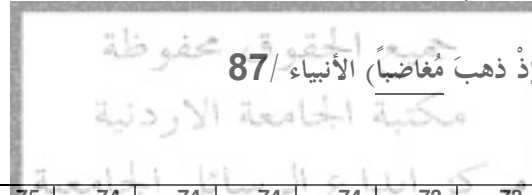 جميع الحقوق محفوظة
إذْ ذهبَ مُغاضباً) الأنبياء /87
مكتبة الجامعة الاردنية